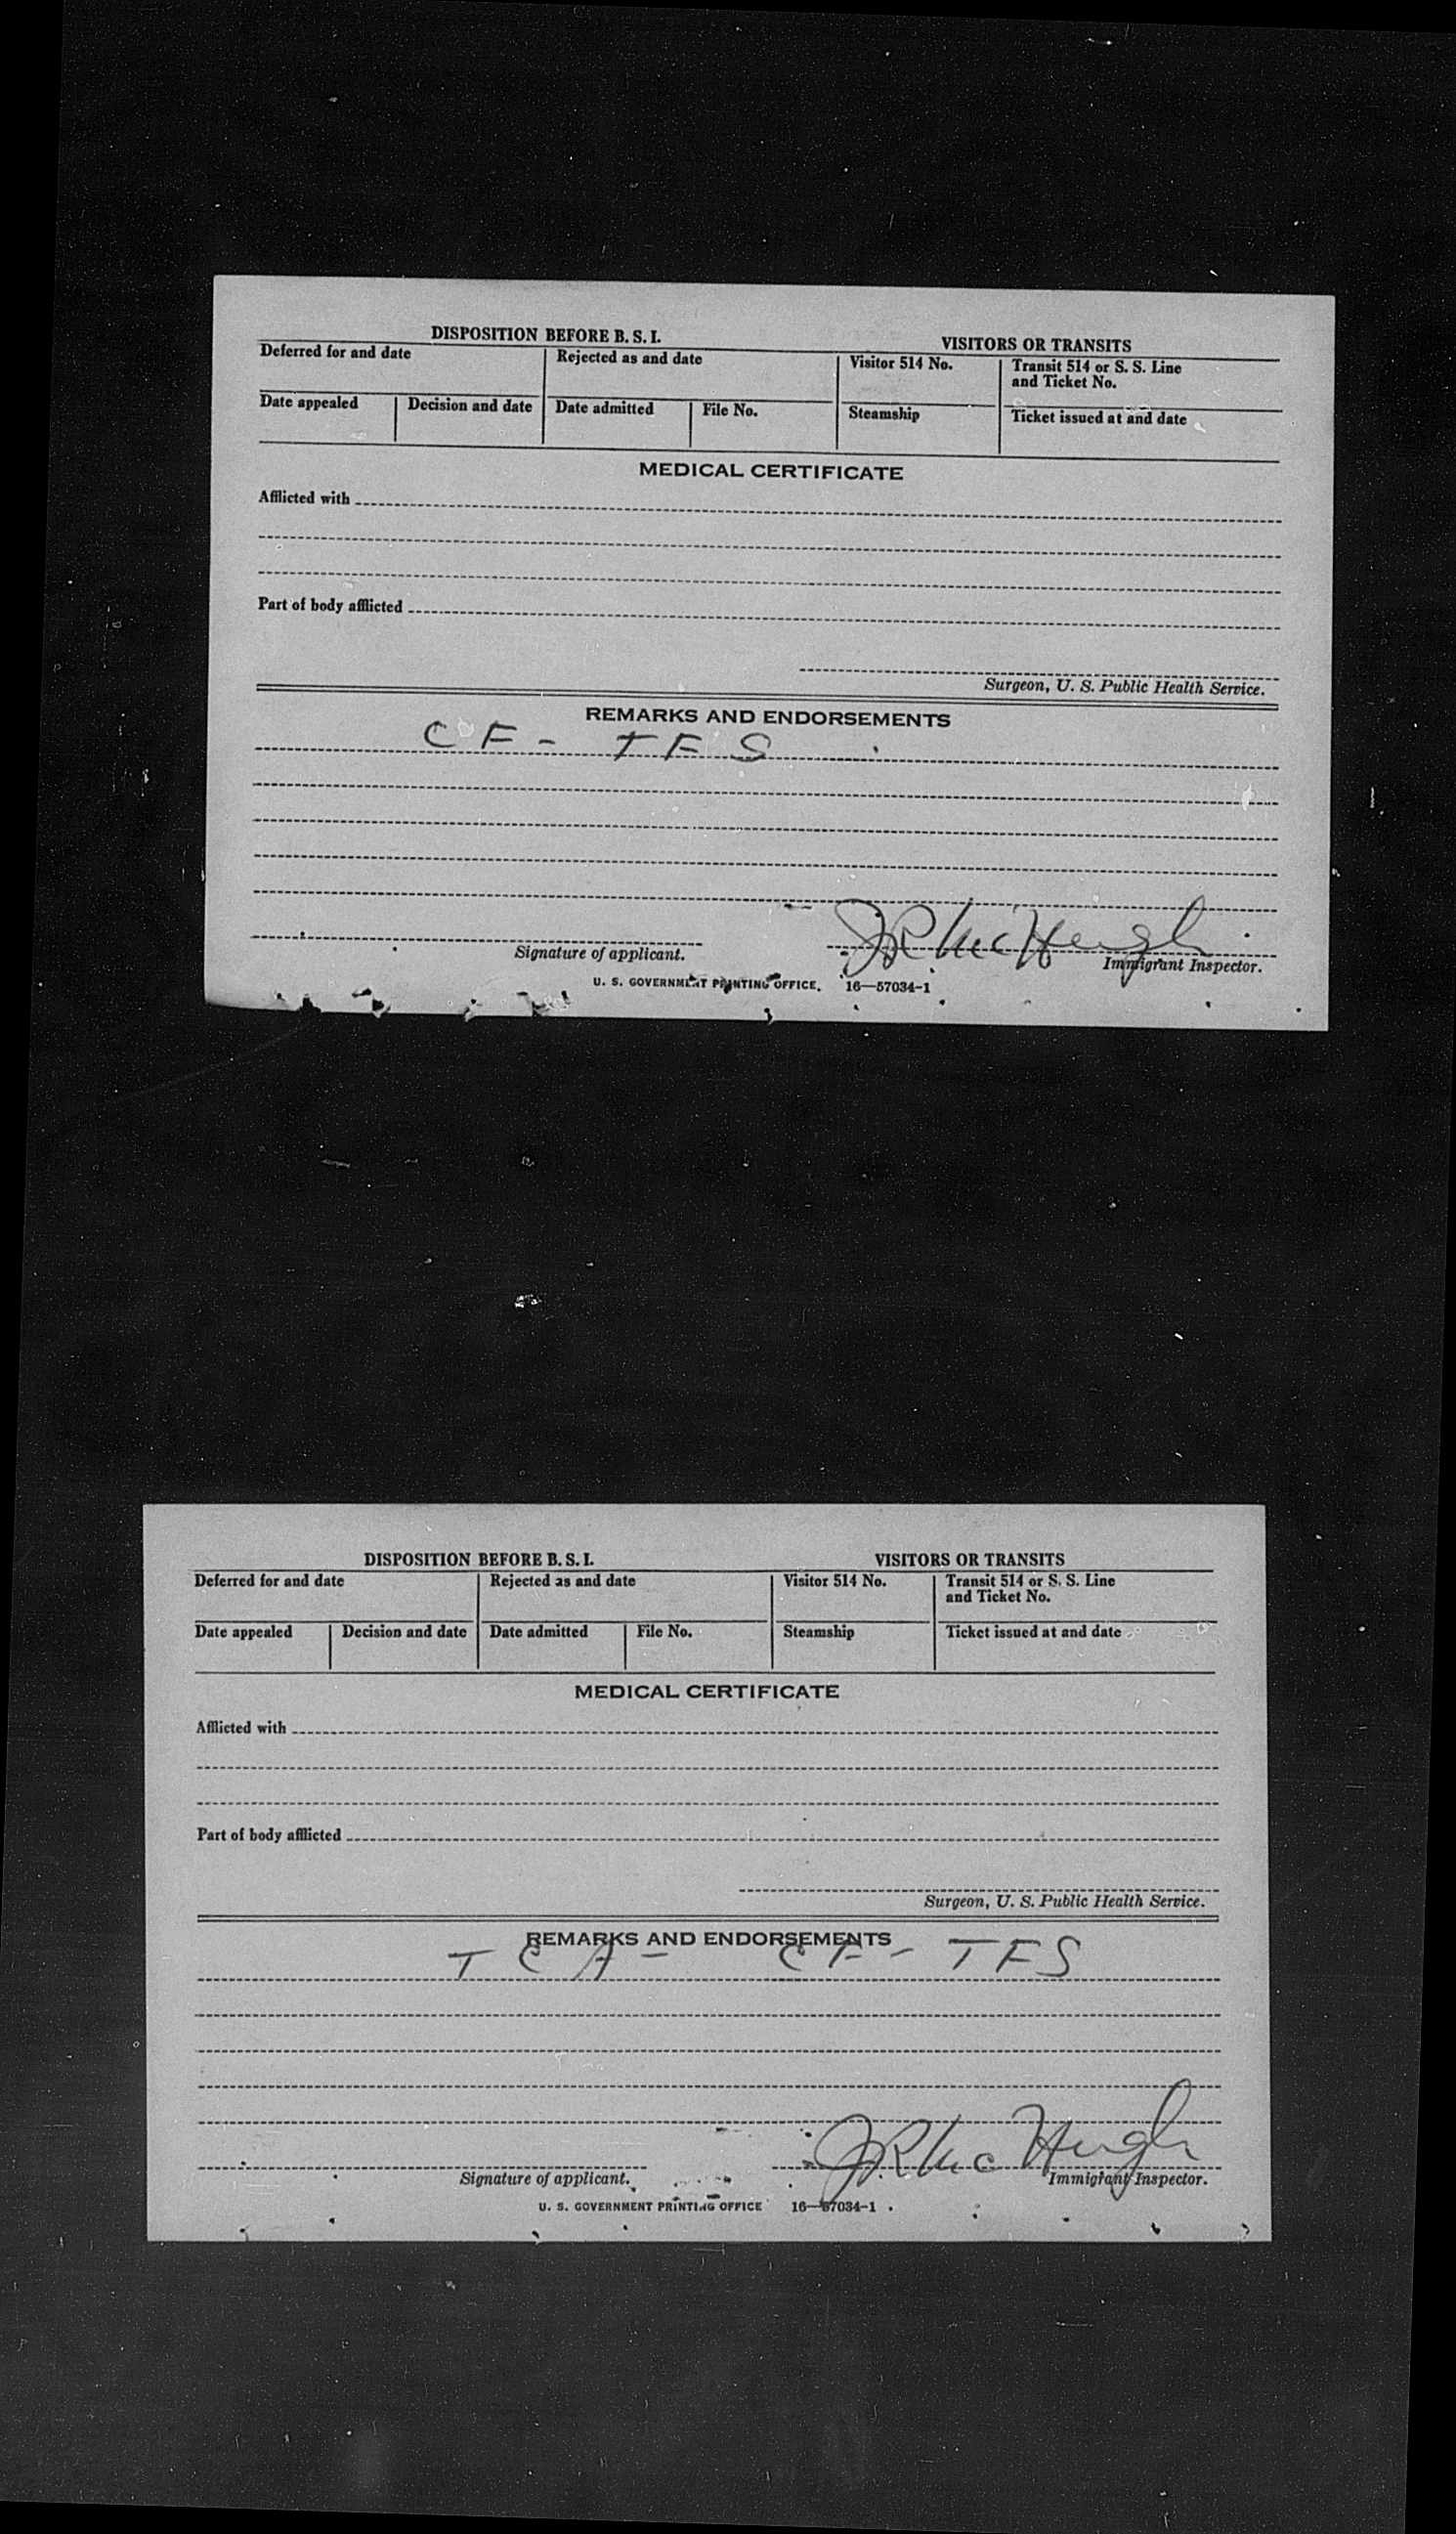 DISPOSITION BEFORE B. S. I. VISITORS OR TRANSITS
Deferred for and date Rejected as and date Visitor 514 No. Transit 514 or S. S. Line and Ticket No.
Date appealed Decision and date Date admitted File No. Steamship Ticket issued at and date
MEDICAL CERTIFICATE
Afflicted with
Part of body afflicted
Surgeon, U. S. Public Health Service.
REMARKS AND ENDORSEMENTS
CF - TFS
JR McHugh
Signature of applicant. Immigrant Inspector.
U. S. GOVERNMENT PRINTING OFFICE. 16—57034-1
DISPOSITION BEFORE B. S. I. VISITORS OR TRANSITS
Deferred for and date Rejected as and date Visitor 514 No. Transit 514 or S. S. Line and Ticket No.
Date appealed Decision and date Date admitted File No. Steamship Ticket issued at and date
MEDICAL CERTIFICATE
Afflicted with
Part of body afflicted
Surgeon, U. S. Public Health Service.
REMARKS AND ENDORSEMENTS
TCA - CF - TFS
JR McHugh
Signature of applicant. Immigrant Inspector.
U. S. GOVERNMENT PRINTING OFFICE 16—57034-1